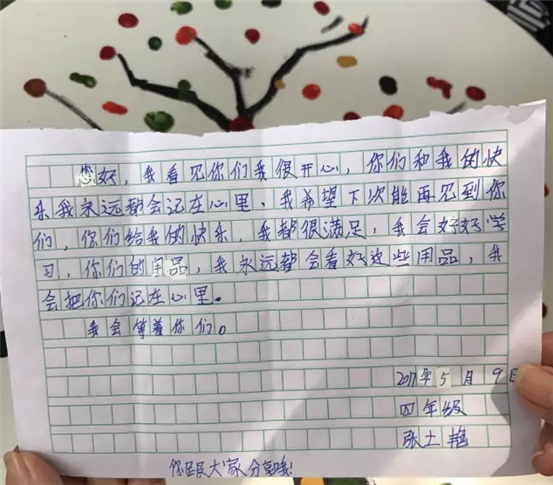 您好，我看见你们我很开心，你们和我的快
乐我永远都会记在心里、我希望下次能再见到你
们，你们给我的快乐，我都很满足，我会好好学
习，你们的用品，我永远都会看好这些用品，我
会把你们记在心里。
我会等着你们。
2017年5月9日
四年级
张土艳
大家分享哦！